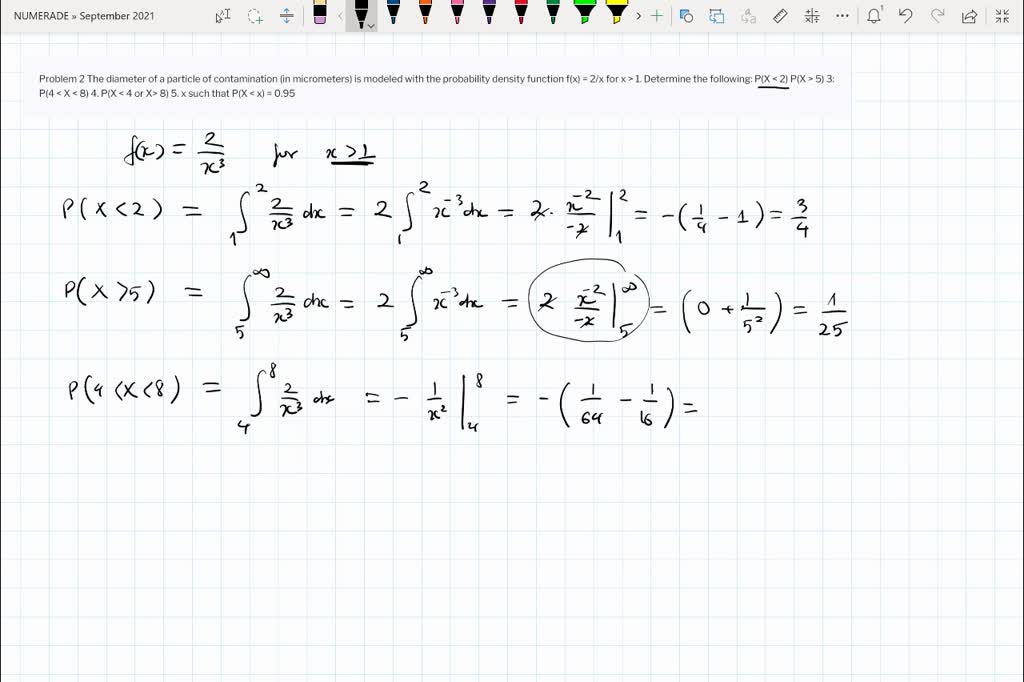 NUMERADE » September 2021
Problem 2 The diameter of a particle of contamination (in micrometers) is modeled with the probability density function f(x) = 2/x for x > 1. Determine the following: P(X < 2) P(X > 5) 3:
P(4 < X < 8) 4. P(X < 4 or X> 8) 5. x such that P(X < x) = 0.95
f(x) = 2/x³ for x > 1
P(X < 2) = ∫₁² 2/x³ dx = 2 ∫₁² x⁻³ dx = 2 · x⁻²/-2 |₁² = -(1/4 - 1) = 3/4
P(X > 5) = ∫₅^∞ 2/x³ dx = 2 ∫₅^∞ x⁻³ dx = 2 x⁻²/-2 |₅^∞ = (0 + 1/5²) = 1/25
P(4 < X < 8) = ∫₄⁸ 2/x³ dx = - 1/x² |₄⁸ = -(1/64 - 1/16) =